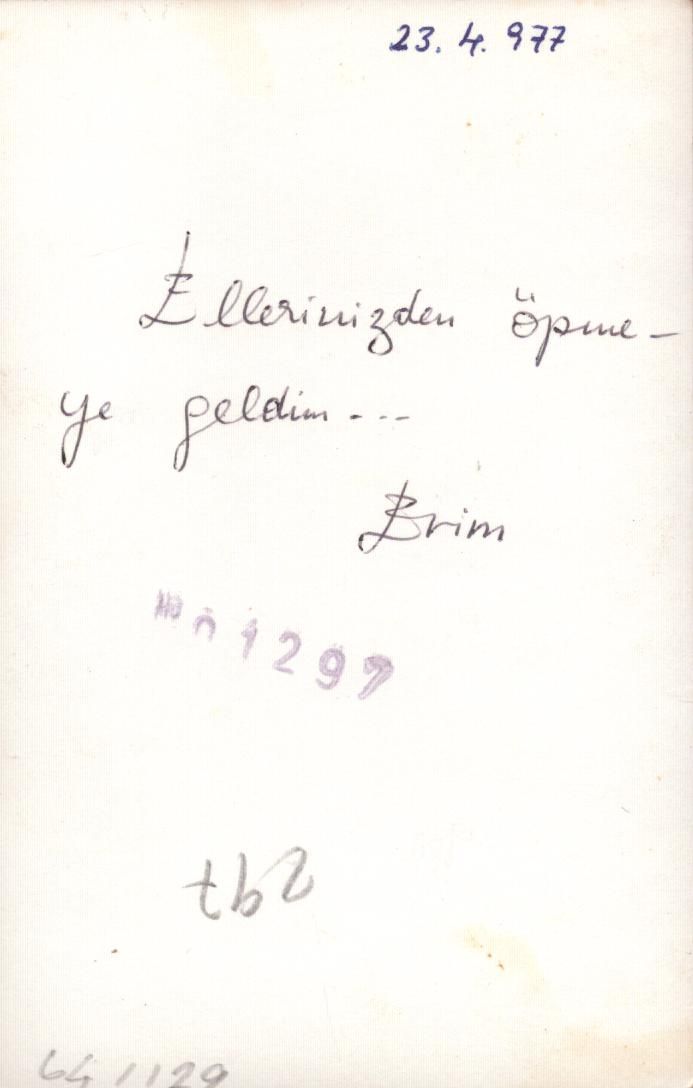 23. 4. 977
Ellerinizden öpme-
ye geldim...
Brim
1297
297
64 1129